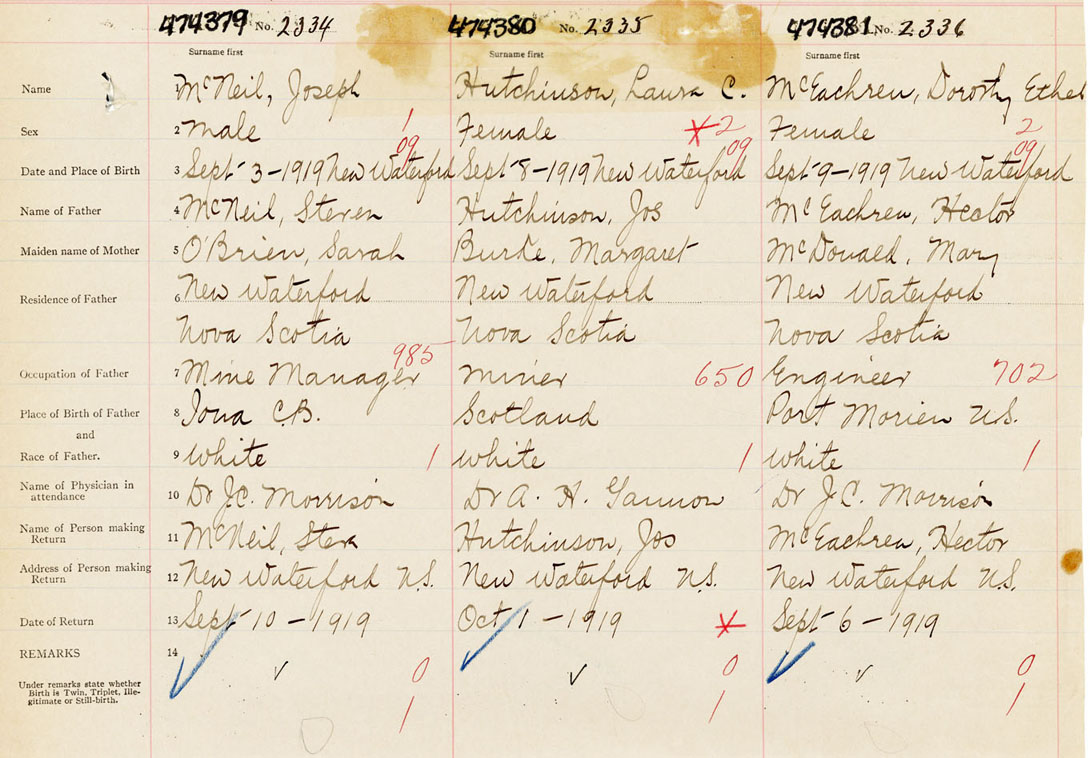 474379 No. 2334 474380 No. 2335 474381 No. 2336
Surname first Surname first Surname first
Name 1 McNeil, Joseph Hutchinson, Laura C. McEachren, Dorothy Ethel
Sex 2 Male 1 Female * 2 Female 2
09 09 09
Date and Place of Birth 3 Sept 3-1919 New Waterford Sept 8-1919 New Waterford Sept 9-1919 New Waterford
Name of Father 4 McNeil, Steven Hutchinson, Jos McEachren, Hector
Maiden name of Mother 5 O'Brien, Sarah Burke, Margaret McDonald, Mary
Residence of Father 6 New Waterford New Waterford New Waterford
Nova Scotia Nova Scotia Nova Scotia
985
Occupation of Father 7 Mine Manager Miner 650 Engineer 702
Place of Birth of Father 8 Iona C.B. Scotland Port Morien N.S.
and
Race of Father. 9 White 1 White 1 White 1
Name of Physician in
attendance 10 Dr J.C. Morrison Dr A. H. Gannon Dr J.C. Morrison
Name of Person making
Return 11 McNeil, Steven Hutchinson, Jos McEachren, Hector
Address of Person making
Return 12 New Waterford N.S. New Waterford N.S. New Waterford N.S.
Date of Return 13 Sept 10-1919 Oct 1-1919 * Sept 6-1919
REMARKS 14
0 0 0
Under remarks state whether
Birth is Twin, Triplet, Ille-
gitimate or Still-birth.
1 1 1